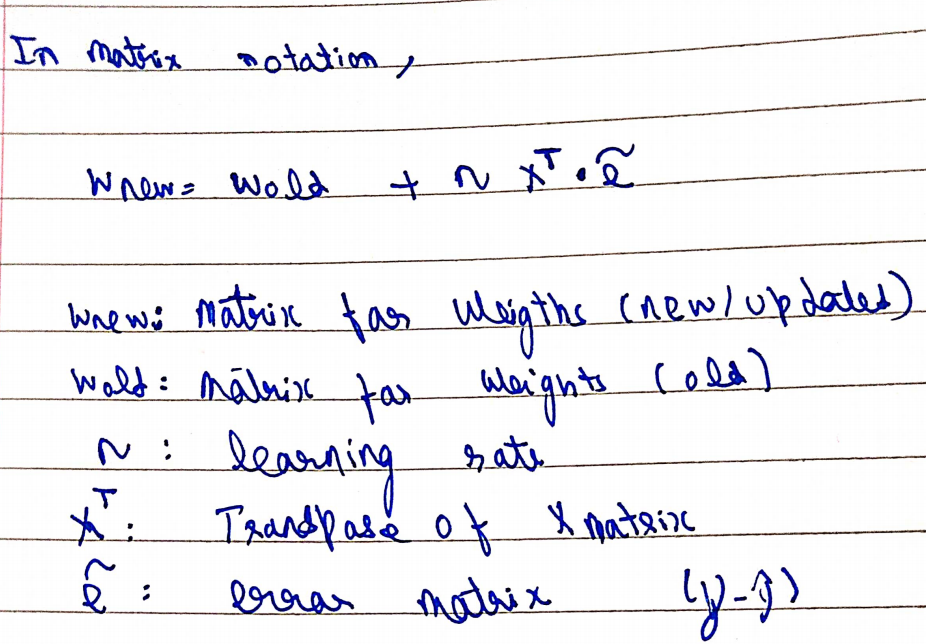 In matrix notation,
Wnew = Wold + η X^T · ẽ
Wnew: Matrix for Weigths (new/updated)
Wold: Matrix for Weights (old)
η : learning rate
X^T : Transpose of X matrix
ẽ : error matrix (y-ŷ)